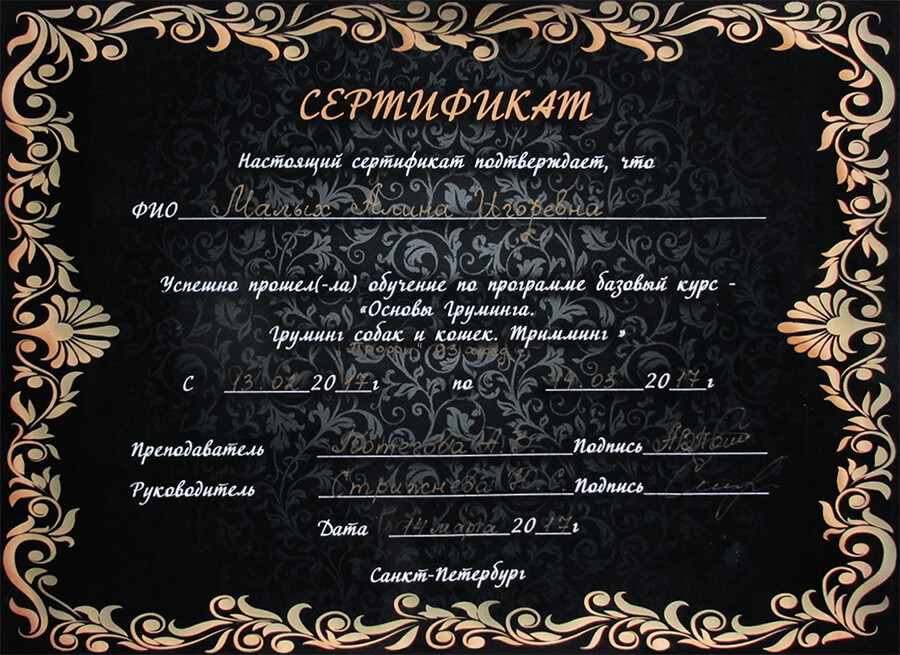 СЕРТИФИКАТ
Настоящий сертификат подтверждает, что
ФИО Малых Алина Игоревна
Успешно прошел(-ла) обучение по программе базовый курс -
«Основы Груминга.
Груминг собак и кошек. Тримминг »
С 13.02 2017г по 14.03 2017г
Преподаватель А.В. Подпись
Руководитель Стрижнева Ю.С. Подпись
Дата 14 марта 2017г
Санкт-Петербург